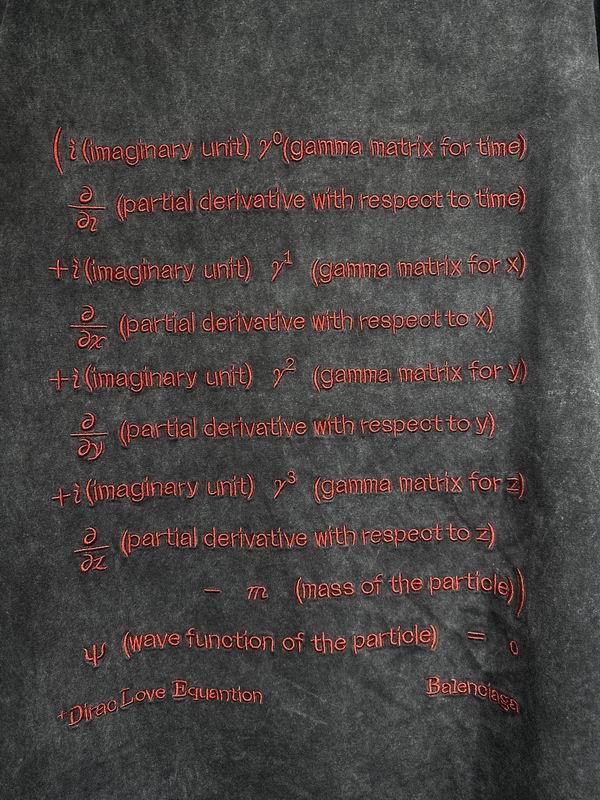 ( i (imaginary unit) γ⁰(gamma matrix for time)
∂/∂ι (partial derivative with respect to time)
+i(imaginary unit) γ¹ (gamma matrix for x)
∂/∂x (partial derivative with respect to x)
+i(imaginary unit) γ² (gamma matrix for y)
∂/∂y (partial derivative with respect to y)
+i(imaginary unit) γ³ (gamma matrix for z)
∂/∂z (partial derivative with respect to z)
− m (mass of the particle))
Ψ (wave function of the particle) = 0
+Dirac Love Equantion Balenciaga